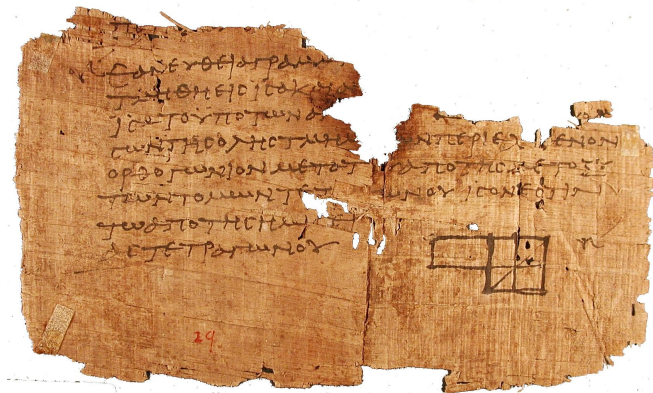 ΕΑΝΕΥΘΕΙΑΓΡΑΜΜ
ΤΜΗΘΗΕΙϹΙϹΑΚΑΙΑ
ΙϹΑΤΟΥΠΟΤΩΝΑ
ϹΩΝΤΗϹΟΛΗϹΤΜΗ ΩΝΠΕΡΙΕΧ ΜΕΝΟΝ
ΟΡΘΟΓΩΝΙΟΝΜΕΤΑΤ ΑΠΟΤΗϹΜΕΤΟΞΥ
ΤΩΝΤΟΜΩΝΤΕΤ ΩΝΟΥΙϹΟΝΕϹΤΙΝ
ΤΩΑΠΟΤΗϹΗΜΙ ΕΙ
ΑϹΤΕΤΡΑΓΩΝΟΥ
29